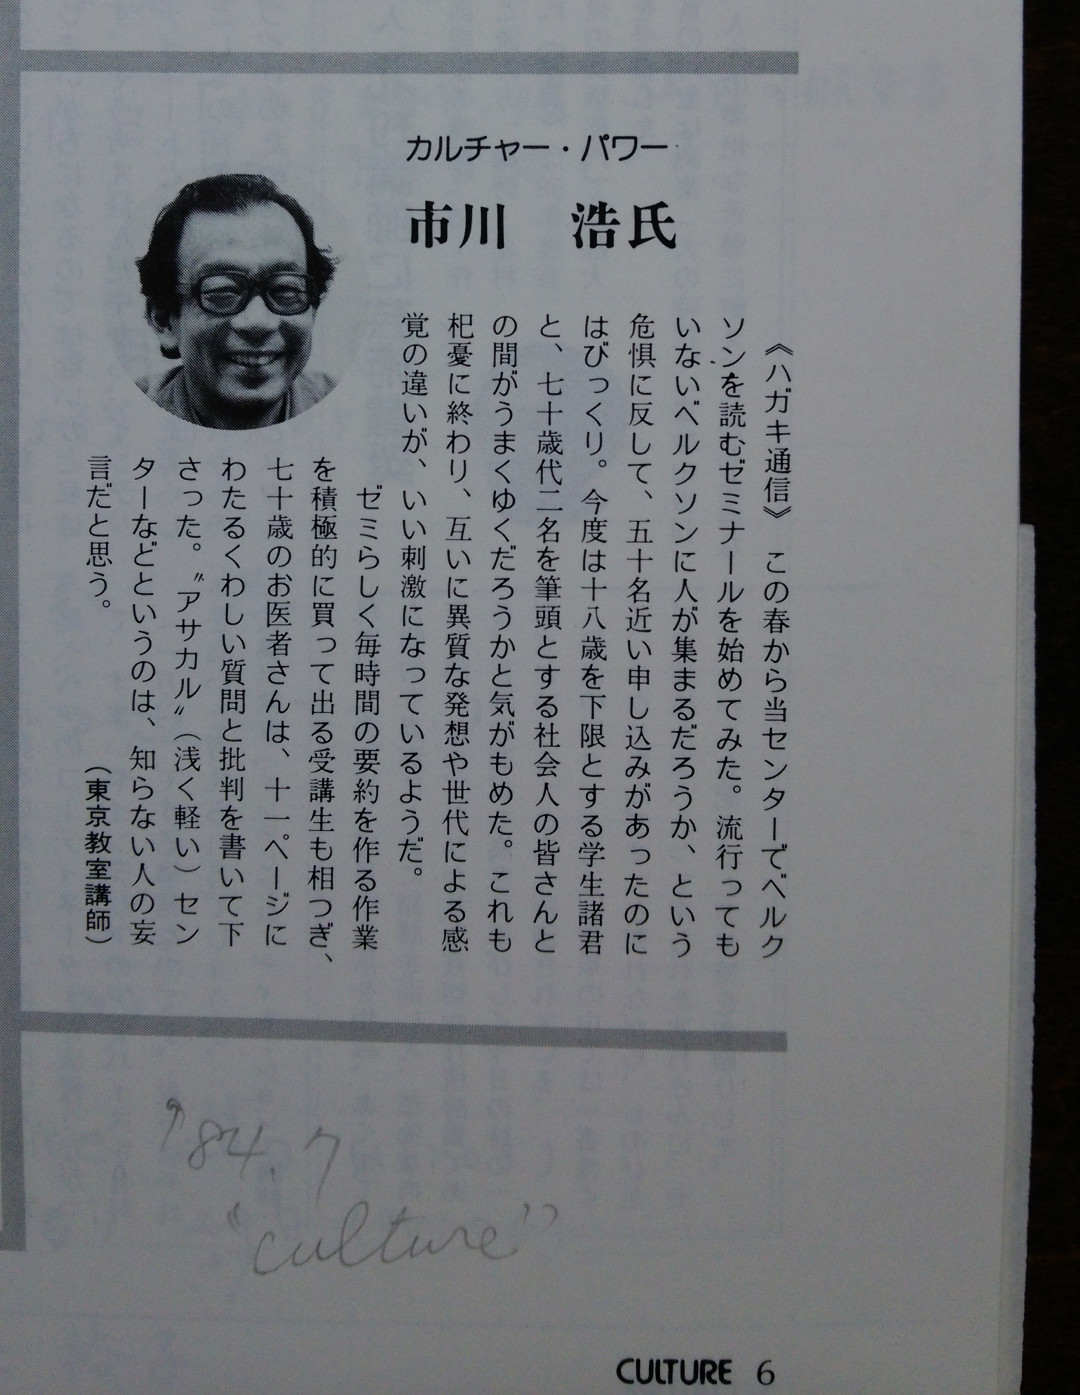 カルチャー・パワー
市川 浩氏
《ハガキ通信》 この春から当センターでベルク
ソンを読むゼミナールを始めてみた。流行っても
いないベルクソンに人が集まるだろうか、という
危惧に反して、五十名近い申し込みがあったのに
はびっくり。今度は十八歳を下限とする学生諸君
と、七十歳代二名を筆頭とする社会人の皆さんと
の間がうまくゆくだろうかと気がもめた。これも
杞憂に終わり、互いに異質な発想や世代による感
覚の違いが、いい刺激になっているようだ。
ゼミらしく毎時間の要約を作る作業
を積極的に買って出る受講生も相つぎ、
七十歳のお医者さんは、十一ページに
わたるくわしい質問と批判を書いて下
さった。〝アサカル〟（浅く軽い）セン
ターなどというのは、知らない人の妄
言だと思う。
（東京教室講師）
'84.7
"culture"
CULTURE 6